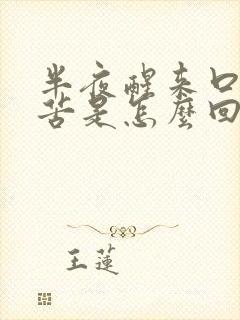 半夜醒来口
苦是怎麼回
王蓮